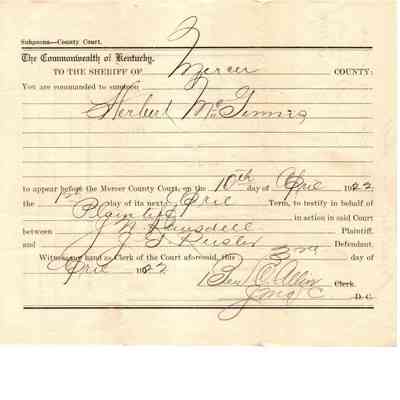 Subpoena—County Court.
The Commonwealth of Kentucky.
TO THE SHERIFF OF Mercer COUNTY:
You are commanded to summon
Herbert McGinnis
to appear before the Mercer County Court, on the 10th day of April 1922
the 1st day of its next April Term, to testify in behalf of
Plaintiff in action in said Court
between J N Plaintiff.
and J. T. Defendant.
Witness my hand as Clerk of the Court aforesaid, this 3rd day of
April 1922
Ben C. Allin Clerk.
D. C.